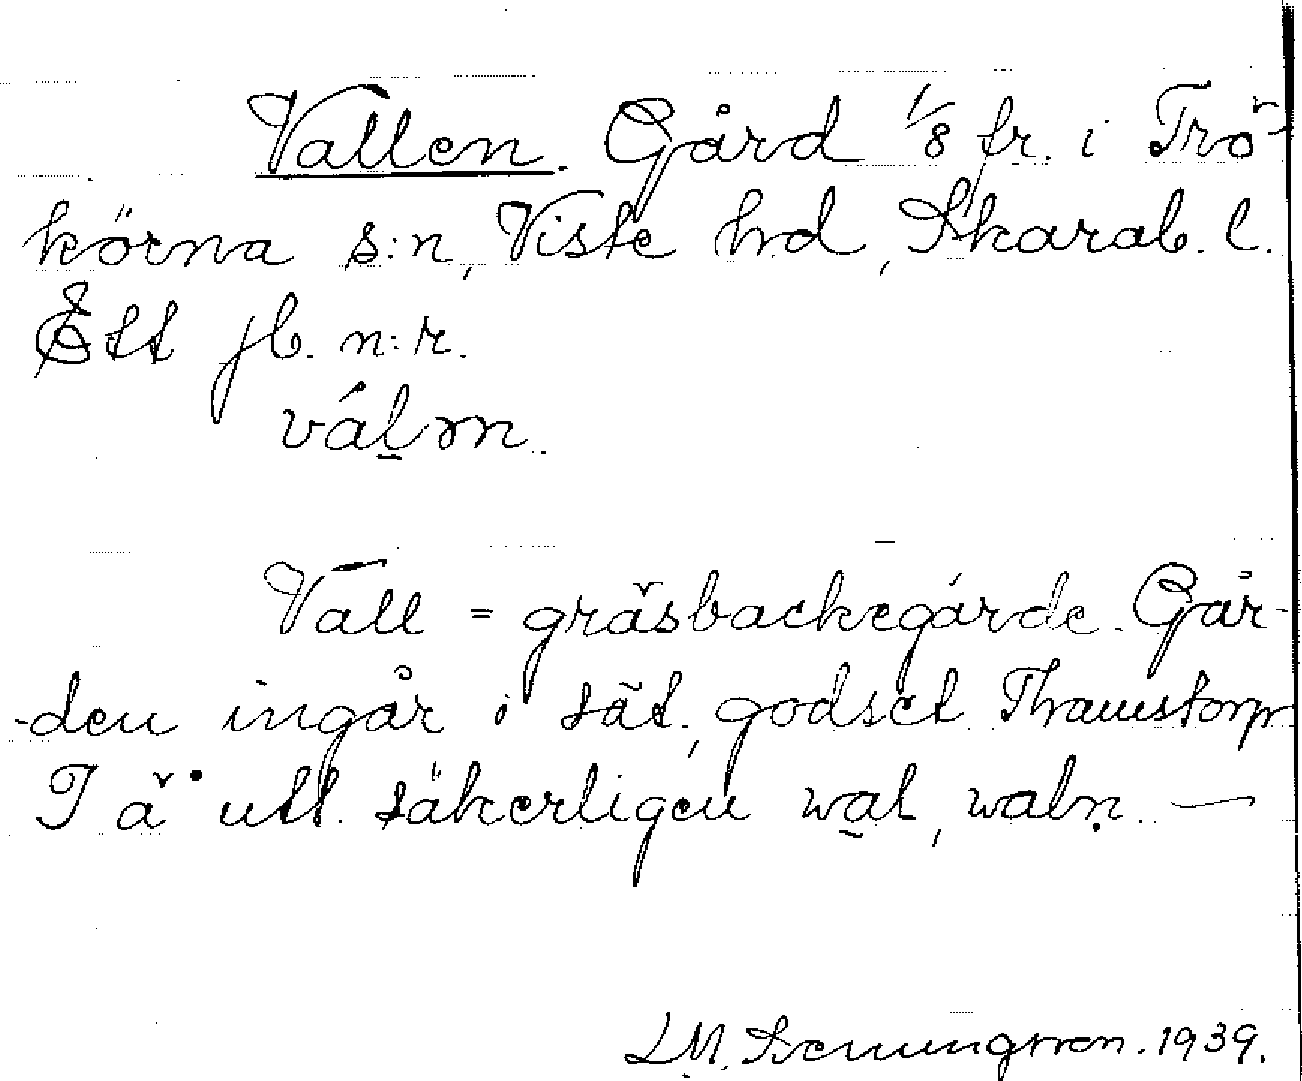 Vallen. Gård 1/8 fr. i Trö-
körna s:n, Viste hd, Skarab. l.
Ett jb. n:r.
Vall = gräsbackegärde. Går-
-den ingår i sät. godset Thamstorp.
I ä utt. säkerligen wal, waln. —
L.M. 1939.